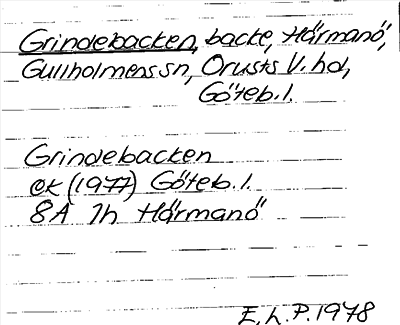 Grindebacken, backe, Härmanö,
Gullholmens sn, Orusts V. hd,
Göteb. l.
Grindebacken
ek (1977) Göteb. l.
8A 1h Härmanö
E. L. P. 1978